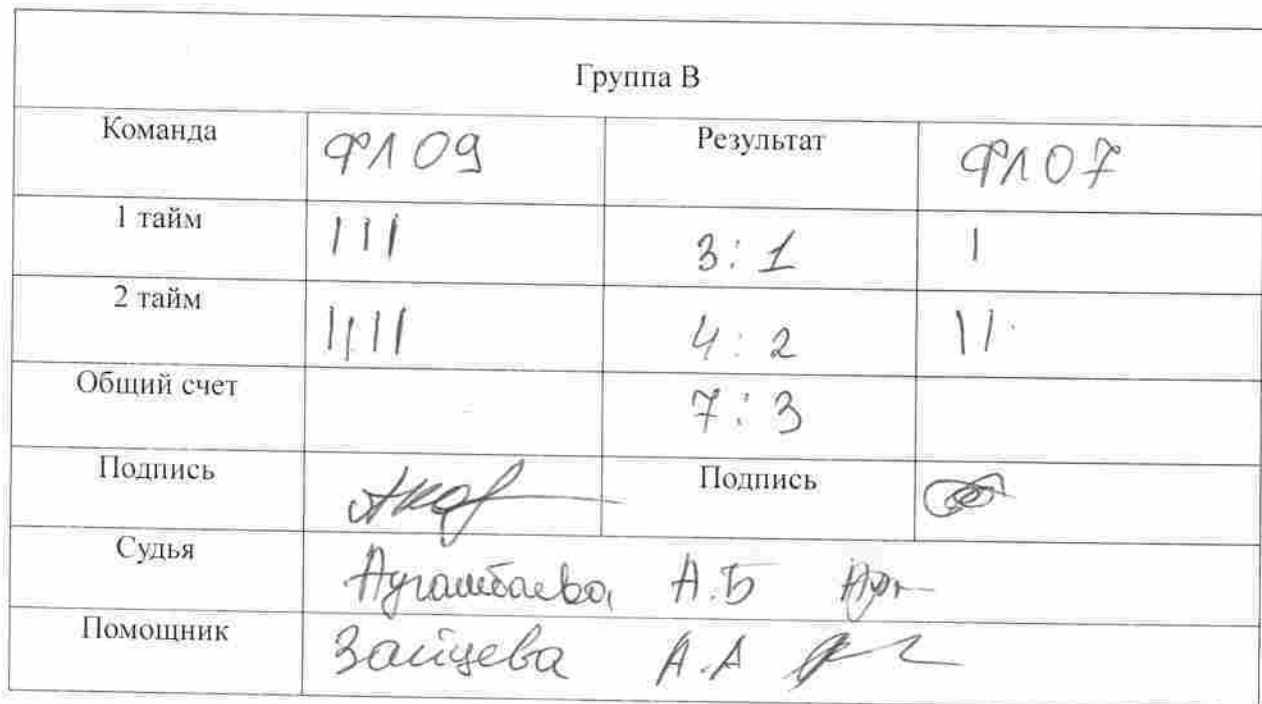 Группа В
Команда ФЛ 09 Результат ФЛ 07
1 тайм ||| 3:1 |
2 тайм |||| 4:2 ||
Общий счет 7:3
Подпись Подпись
Судья А.Б
Помощник Зайцева А.А